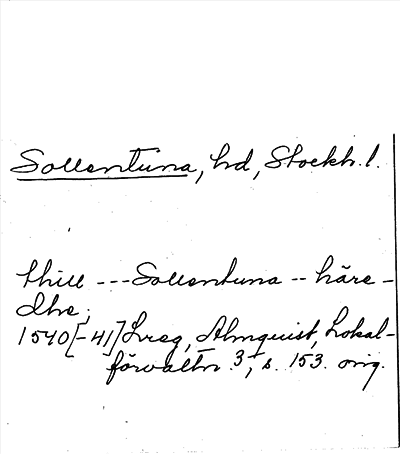 Sollentuna, hd, Stockh. l.
thill --- Sollentuna -- häre-
dhe;
1540[-41] Lreg, Almquist, Lokal-
förvaltn. 3, s. 153. orig.